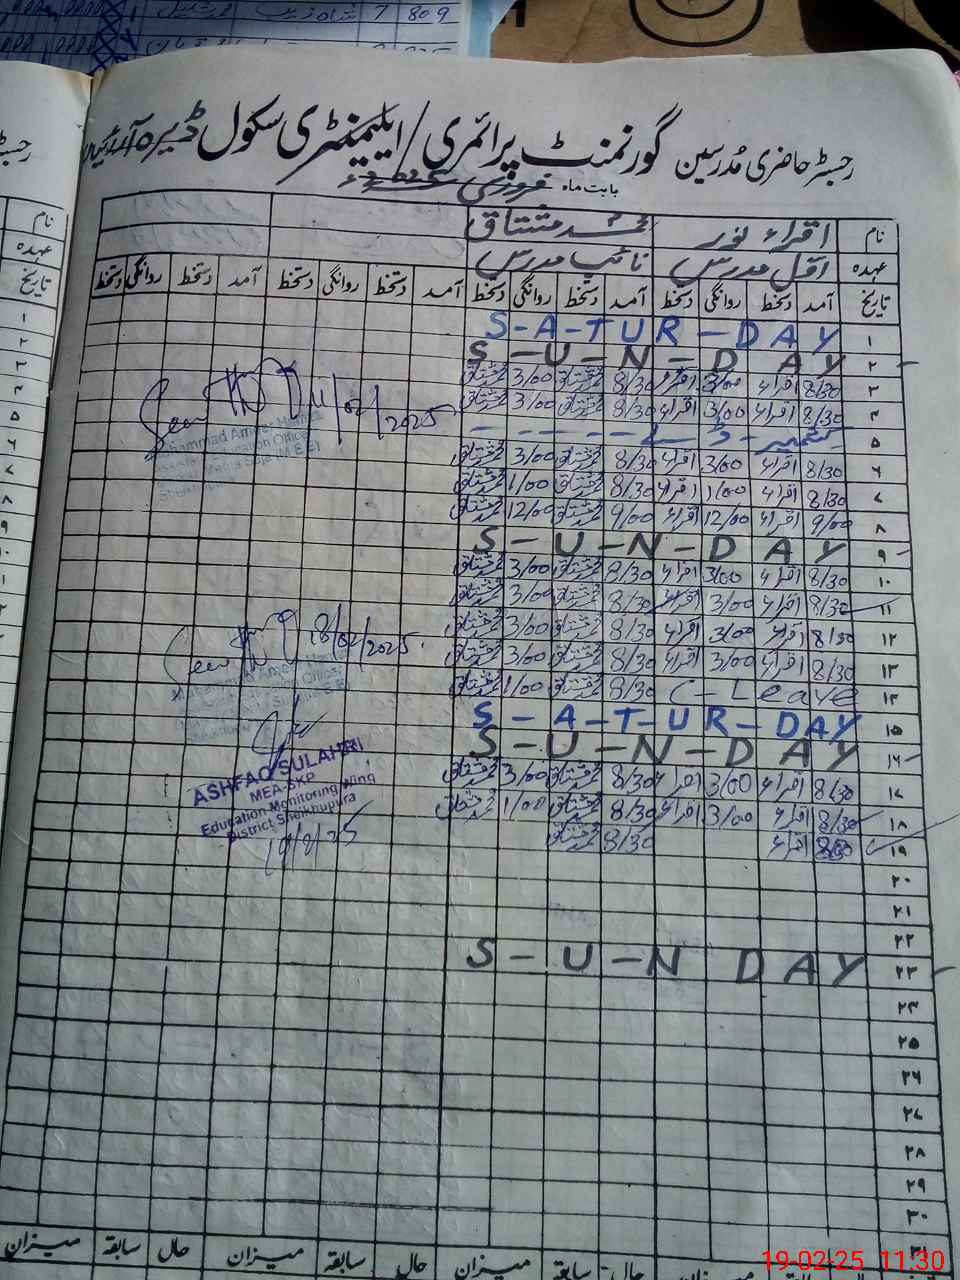 شاہ زیب 7 809
رجسٹر حاضری مُدرسین گورنمنٹ پرائمری/ایلیمنٹری سکول ڈیرہ
بابت ماہ فروری
نام اقراء نور محمد مشتاق
عہدہ اول مدرس نائب مدرس
تاریخ آمد دستخط روانگی دستخط آمد دستخط روانگی دستخط آمد دستخط روانگی دستخط آمد دستخط روانگی دستخط
۱ S-A-TUR-DAY
۲ S-U-N-DAY
۳ 8/30 اقراء 3/00 اقراء 8/30 محمد مشتاق 3/00 محمد مشتاق
۴ 8/30 اقراء 3/00 اقراء 8/30 محمد مشتاق 3/00 محمد مشتاق
11/02/2025
۵ کشمیر - ڈے - - - - -
۶ 8/30 اقراء 3/00 اقراء 8/30 محمد مشتاق 3/00 محمد مشتاق
۷ 8/30 اقراء 1/00 اقراء 8/30 محمد مشتاق 1/00 محمد مشتاق
۸ 9/00 اقراء 12/00 اقراء 9/00 محمد مشتاق 12/00 محمد مشتاق
۹ S-U-N-DAY
۱۰ 8/30 اقراء 3/00 اقراء 8/30 محمد مشتاق 3/00 محمد مشتاق
۱۱ 8/30 اقراء 3/00 اقراء 8/30 محمد مشتاق 3/00 محمد مشتاق
۱۲ 8/30 اقراء 3/00 اقراء 8/30 محمد مشتاق 3/00 محمد مشتاق
18/02/2025
۱۳ 8/30 اقراء 3/00 اقراء 8/30 محمد مشتاق 3/00 محمد مشتاق
۱۴ C-Leave 8/30 محمد مشتاق 1/00 محمد مشتاق
۱۵ S-A-T-UR-DAY
۱۶ S-U-N-DAY
۱۷ 8/30 اقراء 3/00 اقراء 8/30 محمد مشتاق 3/00 محمد مشتاق
۱۸ 8/30 اقراء 3/00 اقراء 8/30 محمد مشتاق 1/00 محمد مشتاق
۱۹ 8/30 اقراء 8/30 محمد مشتاق
ASHFAQ SULAHRI
MEA-SKP
Education Monitoring Wing
District Sheikhupura
19/2/25
۲۰
۲۱
۲۲
۲۳ S-U-N DAY
۲۴
۲۵
۲۶
۲۷
۲۸
۲۹
۳۰
۳۱
حال سابقہ میزان حال سابقہ میزان حال سابقہ میزان
19-02-25 11:30